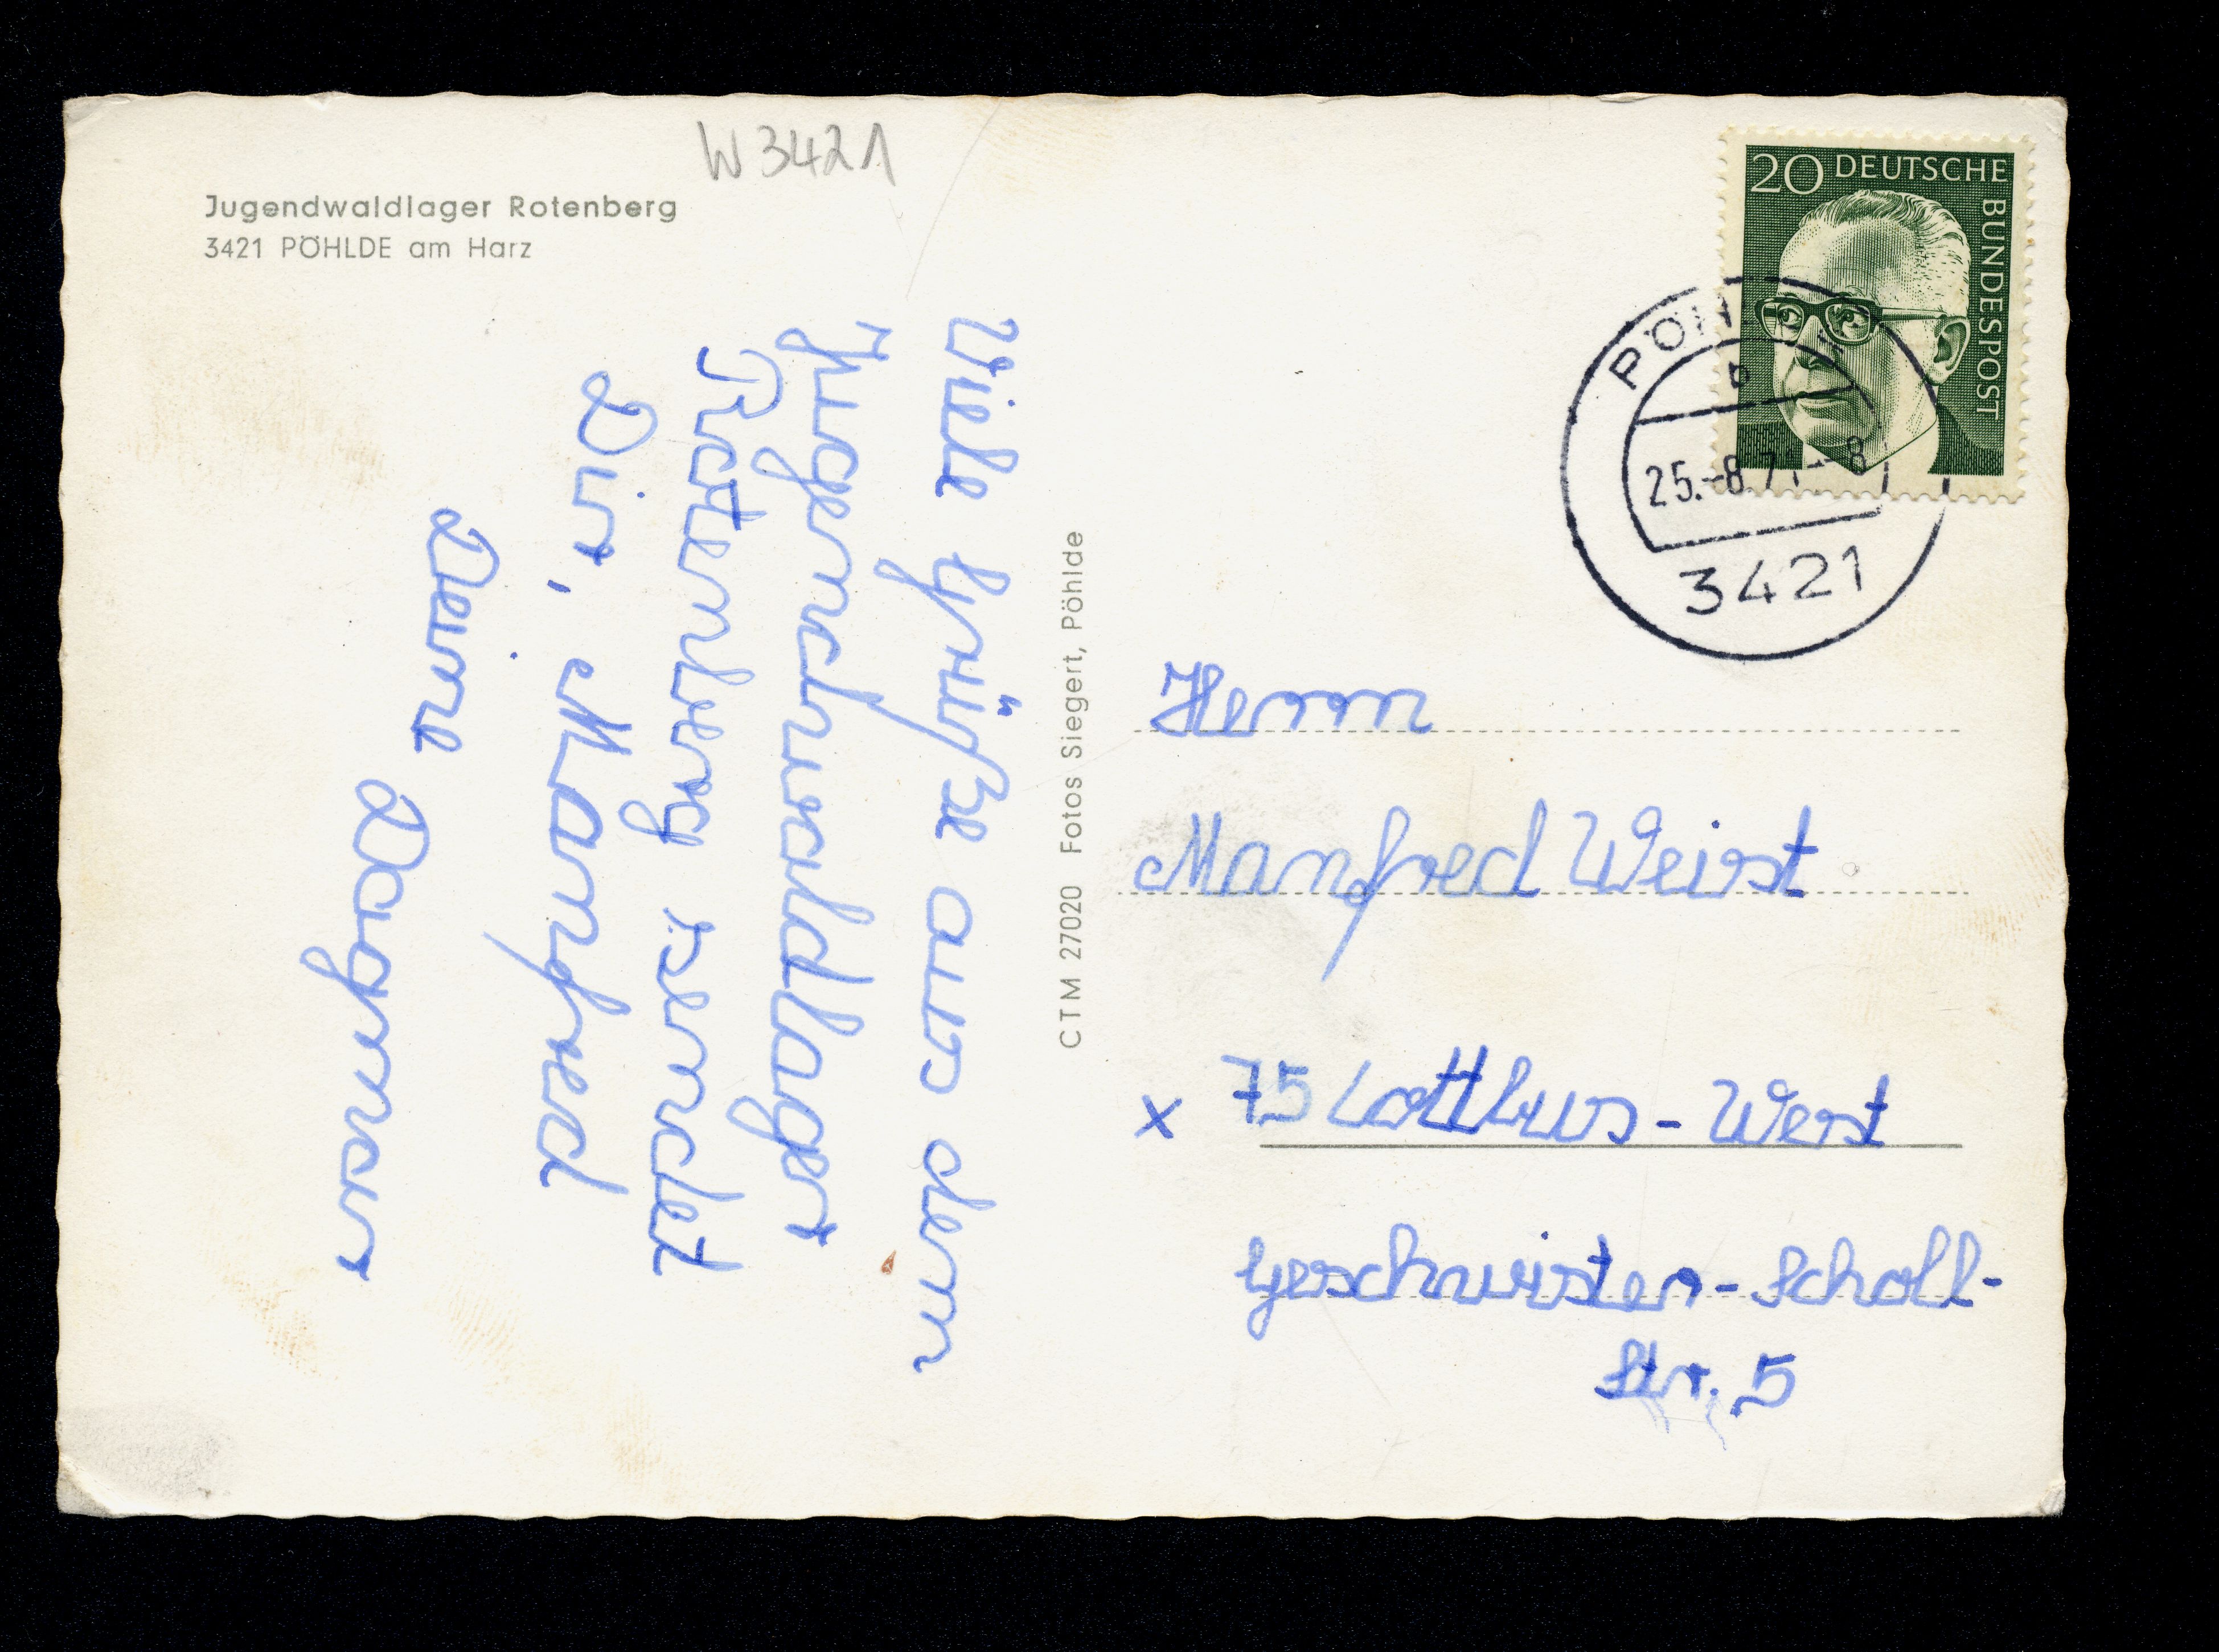 W 3421
Jugendwaldlager Rotenberg
3421 PÖHLDE am Harz
Viele Grüße aus dem
Jugendwaldlager
Rotenberg sendet
Dir, Manfred
Deine
Dagmar
CTM 27020 Fotos Siegert, Pöhlde
20 DEUTSCHE
BUNDESPOST
PÖH
b
25.-8.71--8
3421
Herrn
Manfred Weist
x 75 Cottbus-West
Geschwister-Scholl-
Str. 5